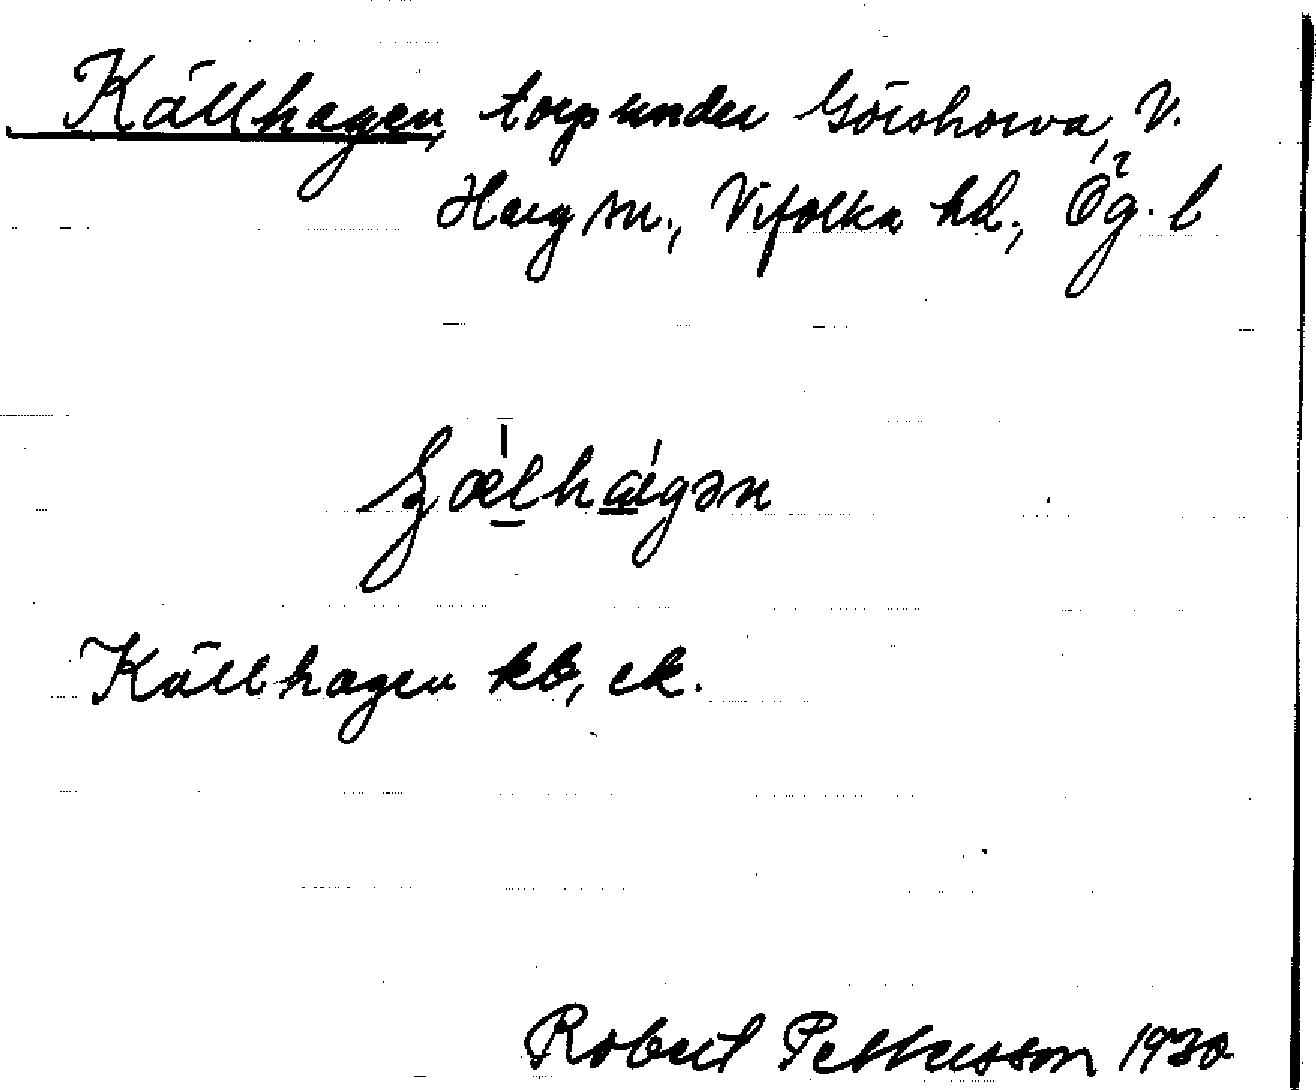 Källhagen, torp under Görshorva, V.
Harg sn., Vifolka hd., Ög. l
Källhagen kb, ek.
Robert Pettersson 1930